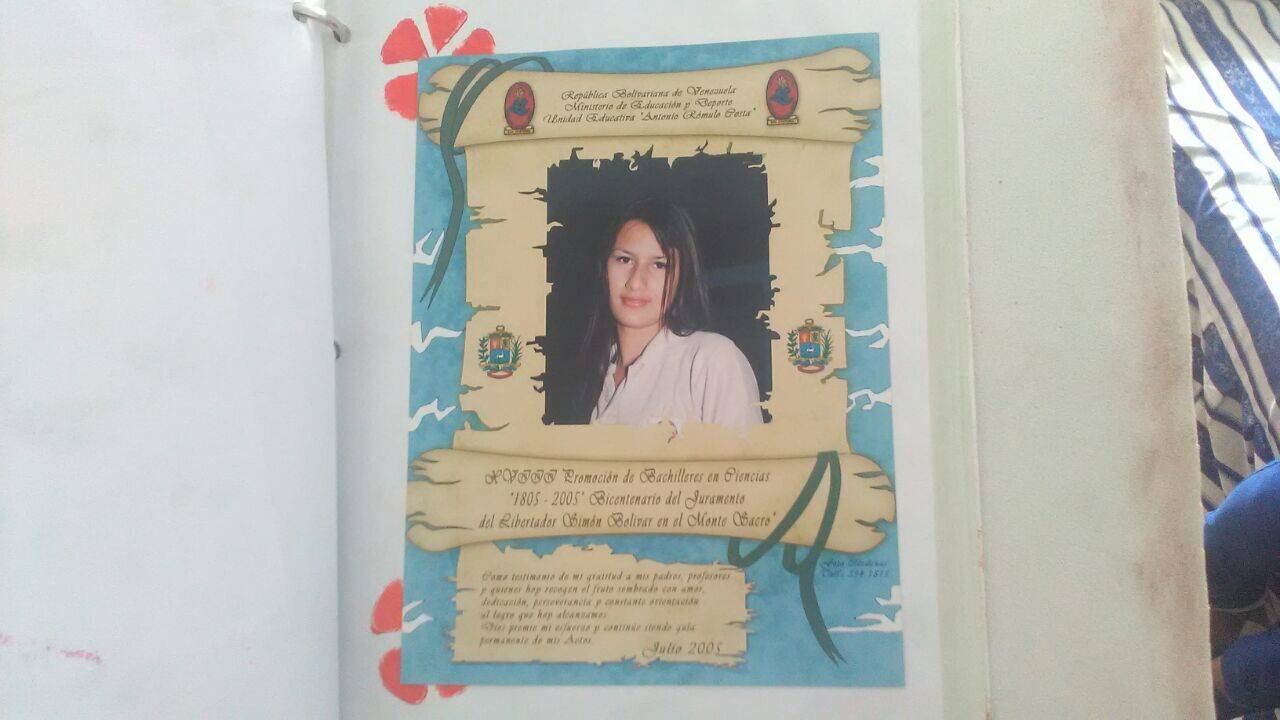 República Bolivariana de Venezuela
Ministerio de Educación y Deporte
Unidad Educativa "Antonio Rómulo Costa"
XVIII Promoción de Bachilleres en Ciencias
"1805 - 2005" Bicentenario del Juramento
del Libertador Simón Bolívar en el Monte Sacro"
Como testimonio de mi gratitud a mis padres, profesores
y quienes hoy recogen el fruto sembrado con amor,
dedicación, perseverancia y constante orientación
al logro que hoy alcanzamos.
Dios premie mi esfuerzo y continúe siendo guía
permanente de mis Actos.
Julio 2005
Foto